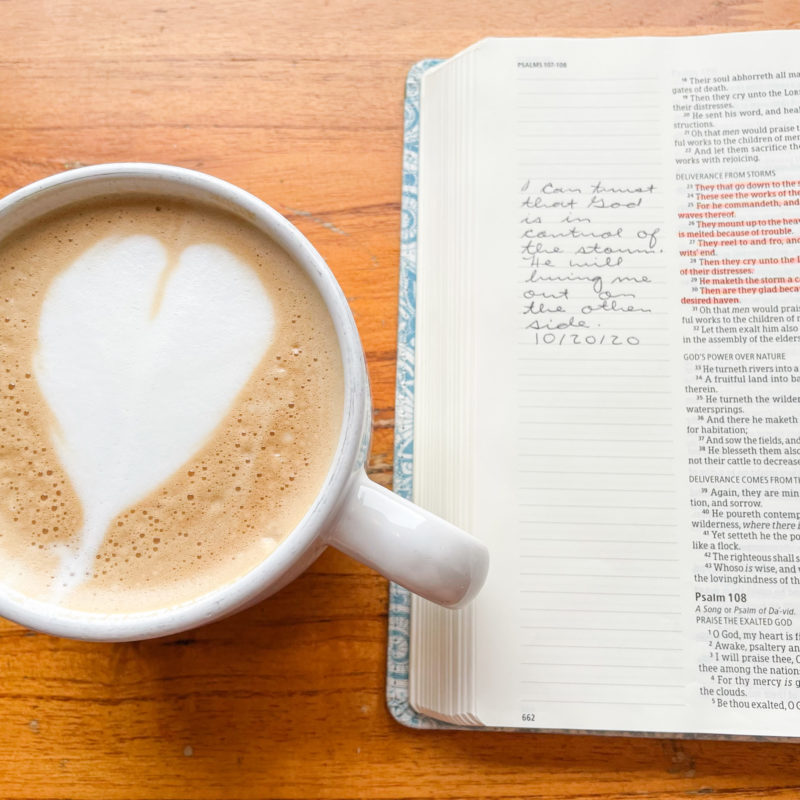 PSALMS 107-108
I can trust
that God
is in
control of
the storm.
He will
bring me
out on
the other
side.
10/20/20
18 Their soul abhorreth all
gates of death.
19 Then they cry unto the LORD
their distresses.
20 He sent his word, and
structions.
21 Oh that men would praise
ful works to the children of
22 And let them sacrifice
works with rejoicing.
DELIVERANCE FROM STORMS
23 They that go down to the
24 These see the works of the
25 For he commandeth, and
waves thereof.
26 They mount up to the
is melted because of trouble.
27 They reel to and fro, and
wits' end.
28 Then they cry unto the
of their distresses:
29 He maketh the storm a
30 Then are they glad
desired haven.
31 Oh that men would
ful works to the children of
32 Let them exalt him also
in the assembly of the elders
GOD'S POWER OVER NATURE
33 He turneth rivers into a
34 A fruitful land into
therein.
35 He turneth the
watersprings.
36 And there he maketh
for habitation;
37 And sow the fields, and
38 He blesseth them also
not their cattle to decrease
DELIVERANCE COMES FROM
39 Again, they are
tion, and sorrow.
40 He poureth
wilderness, where there
41 Yet setteth he the
like a flock.
42 The righteous shall
43 Whoso is wise, and
the lovingkindness of
Psalm 108
A Song or Psalm of Da'-vid.
PRAISE THE EXALTED GOD
1 O God, my heart is
2 Awake, psaltery
3 I will praise thee,
thee among the
4 For thy mercy is
the clouds.
5 Be thou exalted, O
662